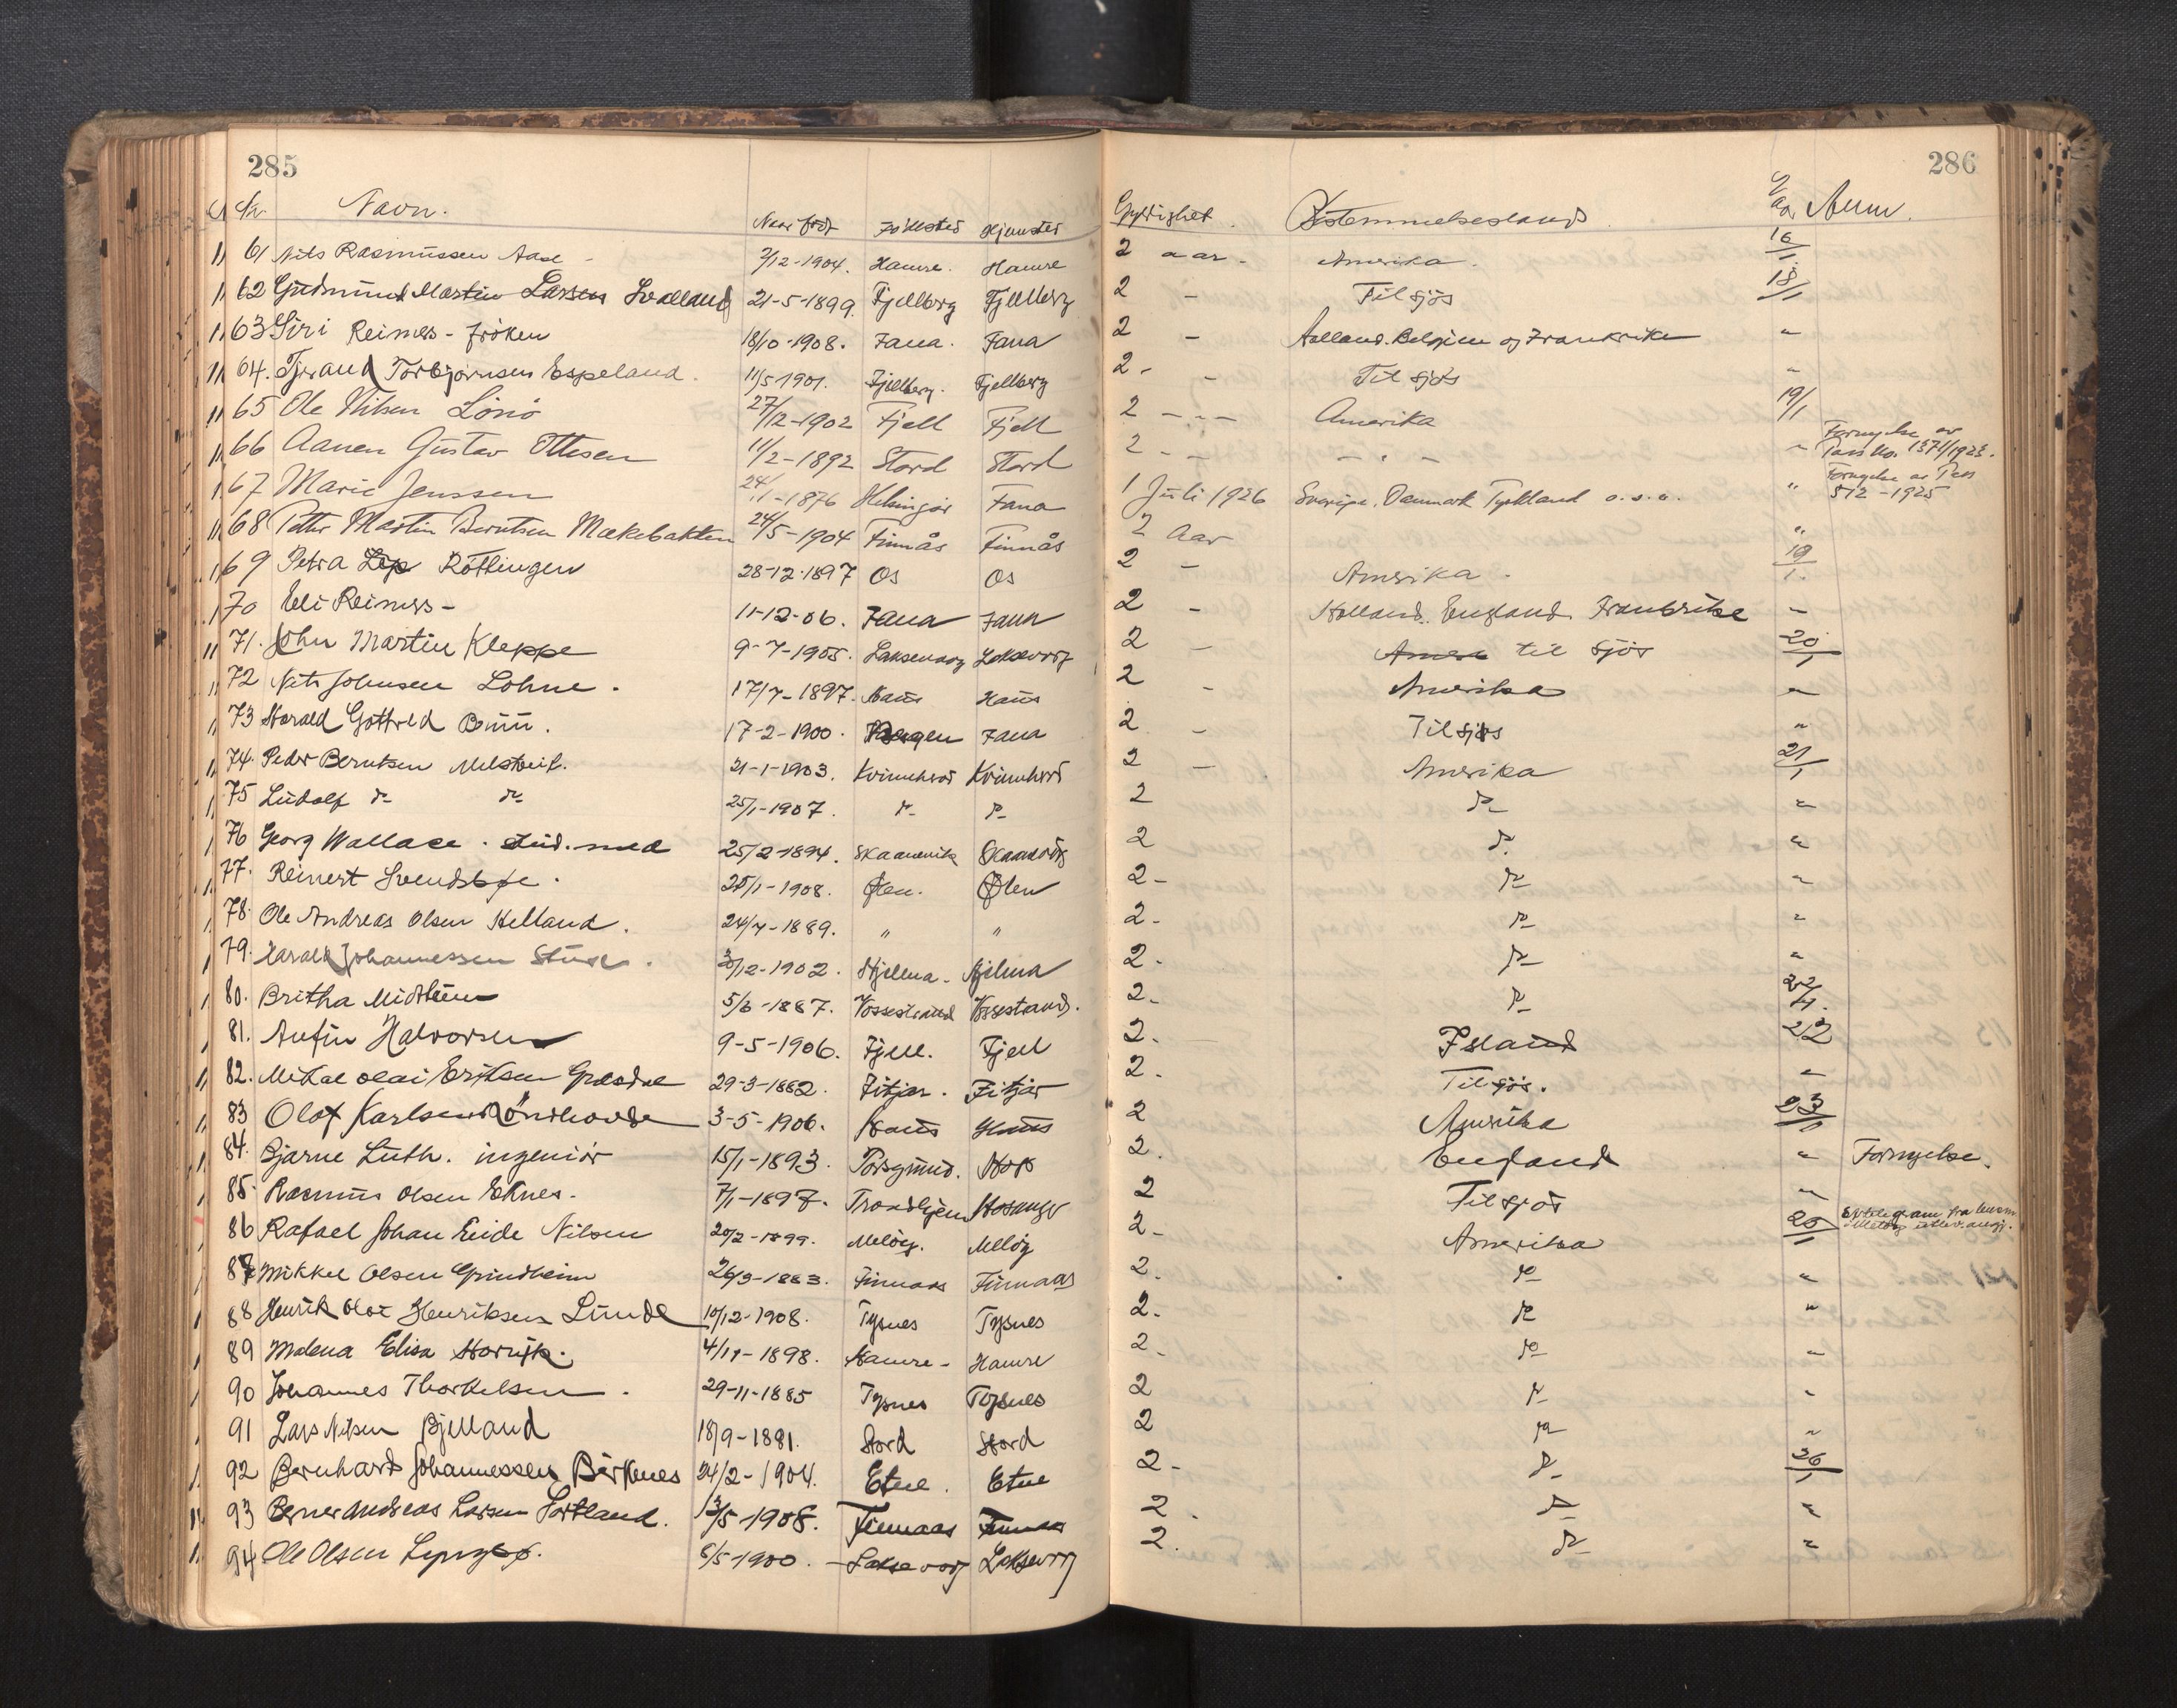 285 286
Nr. Navn. Naar född Födested Hjemsted Gyldighet Bestemmelsesland Anm.
61 Nils Rasmussen Aase 2/12-1904. Hamre. Hamre 2 aar - Amerika. 16/1
62 Gudmund Martin Larsen Svalland 21-5-1899. Fjelberg Fjelberg 2 - Til sjös 18/1
63 Siri Reimers - fröken 18/10-1908. Fana. Fana 2 - Holland. Belgien og Frankrike "
64. Tjerand Torbjørnsen Espeland. 11/5 1901. Fjelberg. Fjelberg 2 - - Til sjøs "
65 Ole Nilsen Lönö 27/12-1902 Fjell Fjell 2 - - - Amerika 19/1
66 Aanen Gustav Ottesen 11/2-1892 Stord Stord 2 - - - " - " Fornyelse av Pass No. 1571/1923.
67 Marie Jenssen 24/11-1876 Helsingör Fana 1 Juli 1926 Sverige, Danmark Tyskland o.s.v. " Fornyelse av Pass 512-1925
68 Petter Martin Berntsen Mækebakken 24/5-1904 Finnås Finnås 2 Aar "
69 Petra Röttingen 28-12-1897 Os Os 2 - Amerika. 19/1.
70 Eli Reimers - 11-12-06. Fana Fana 2 - Holland. England Frankrike "
71. John Martin Kleppe 9-7-1905. Laksevaag Laksevaag 2 - til sjös 20/1
72 Nils Johnsen Lohne. 17/7-1897. Haus Haus 2 - Amerika "
73 Harald Gotfred Bruu. 17-2-1900. Bergen Fana 2 - Til sjøs "
74. Peder Berntsen Melstveit. 21-1-1903. Kvinnherad Kvinnherad 2 - Amerika 21/1
75 Ludolf do do 25/1-1907. do do 2 do "
76 Georg Wallace. stud. med 25/2-1894. Skaanevik Skaanevik 2 do "
77. Reinert Svendsbøe. 25/1-1908. Ølen. Ølen 2 - do "
78. Ole Andreas Olsen Helland. 24/7-1889. " " 2 - do "
79. Harald Johannessen Stuve. 30/12-1902. Hjelma. Hjelma 2 - do "
80. Britha Midttun 5/6-1887. Vossestrand Vossestrand. 2 - do 22/1.
81. Anfin Halvorsen 9-5-1906. Fjell. Fjell 2 - Island 22
82. Mikal Olai Eriksen Græsdal 29-3-1882. Fitjar. Fitjar 2 - Til sjös. "
83 Olaf Karlsen Röndhovde 3-5-1906. Haus Haus 2 Amerika 23/1
84. Bjarne Luth. ingeniör 15/1-1893. Porsgrund. Hop 2. England " Fornyelse.
85. Rasmus Olsen Eknes. 7/1-1897. Trondhjem Hosanger 2 Til sjös "
86 Rafael Johan Eide Nilsen 20/2-1899. Melöy. Melöy 2 - Amerika 25/1
87 Mikkel Olsen Grindheim 26/3-1883. Finnaas Finnaas 2. do "
88 Henrik Olai Henriksen Lunde 10/12-1908. Tysnes Tysnes 2 - do "
89 Malena Elisa Storvik. 4/11-1898. Hamre - Hamre 2 - do "
90 Johannes Thorkelsen. 29-11-1885 Tysnes Tysnes 2 do "
91 Lars Nilsen Bjelland 18/9-1881. Stord Stord 2 do "
92 Bernhard Johannessen Birknes 24/2-1904. Etne. Etne 2 - do 26/1
93 Berner Andreas Larsen Sortland. 13/5-1908. Finnaas Finnaas 2. do "
94 Ole Olsen Lyngbø. 6/5 1900. - Laksevaag Laksevaag 2. do "